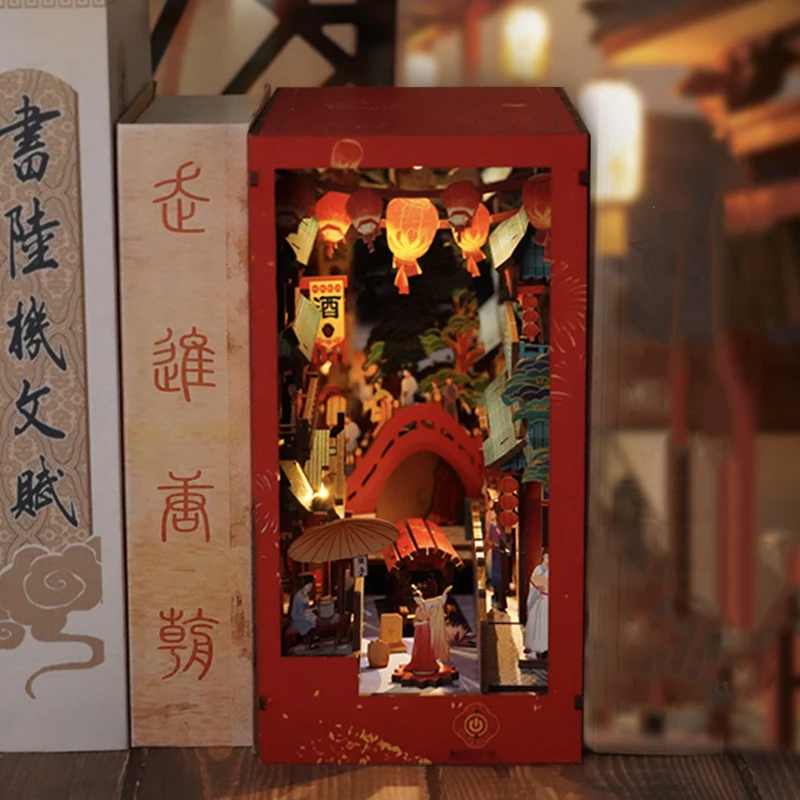 書陸機文賦
走進唐朝
酒